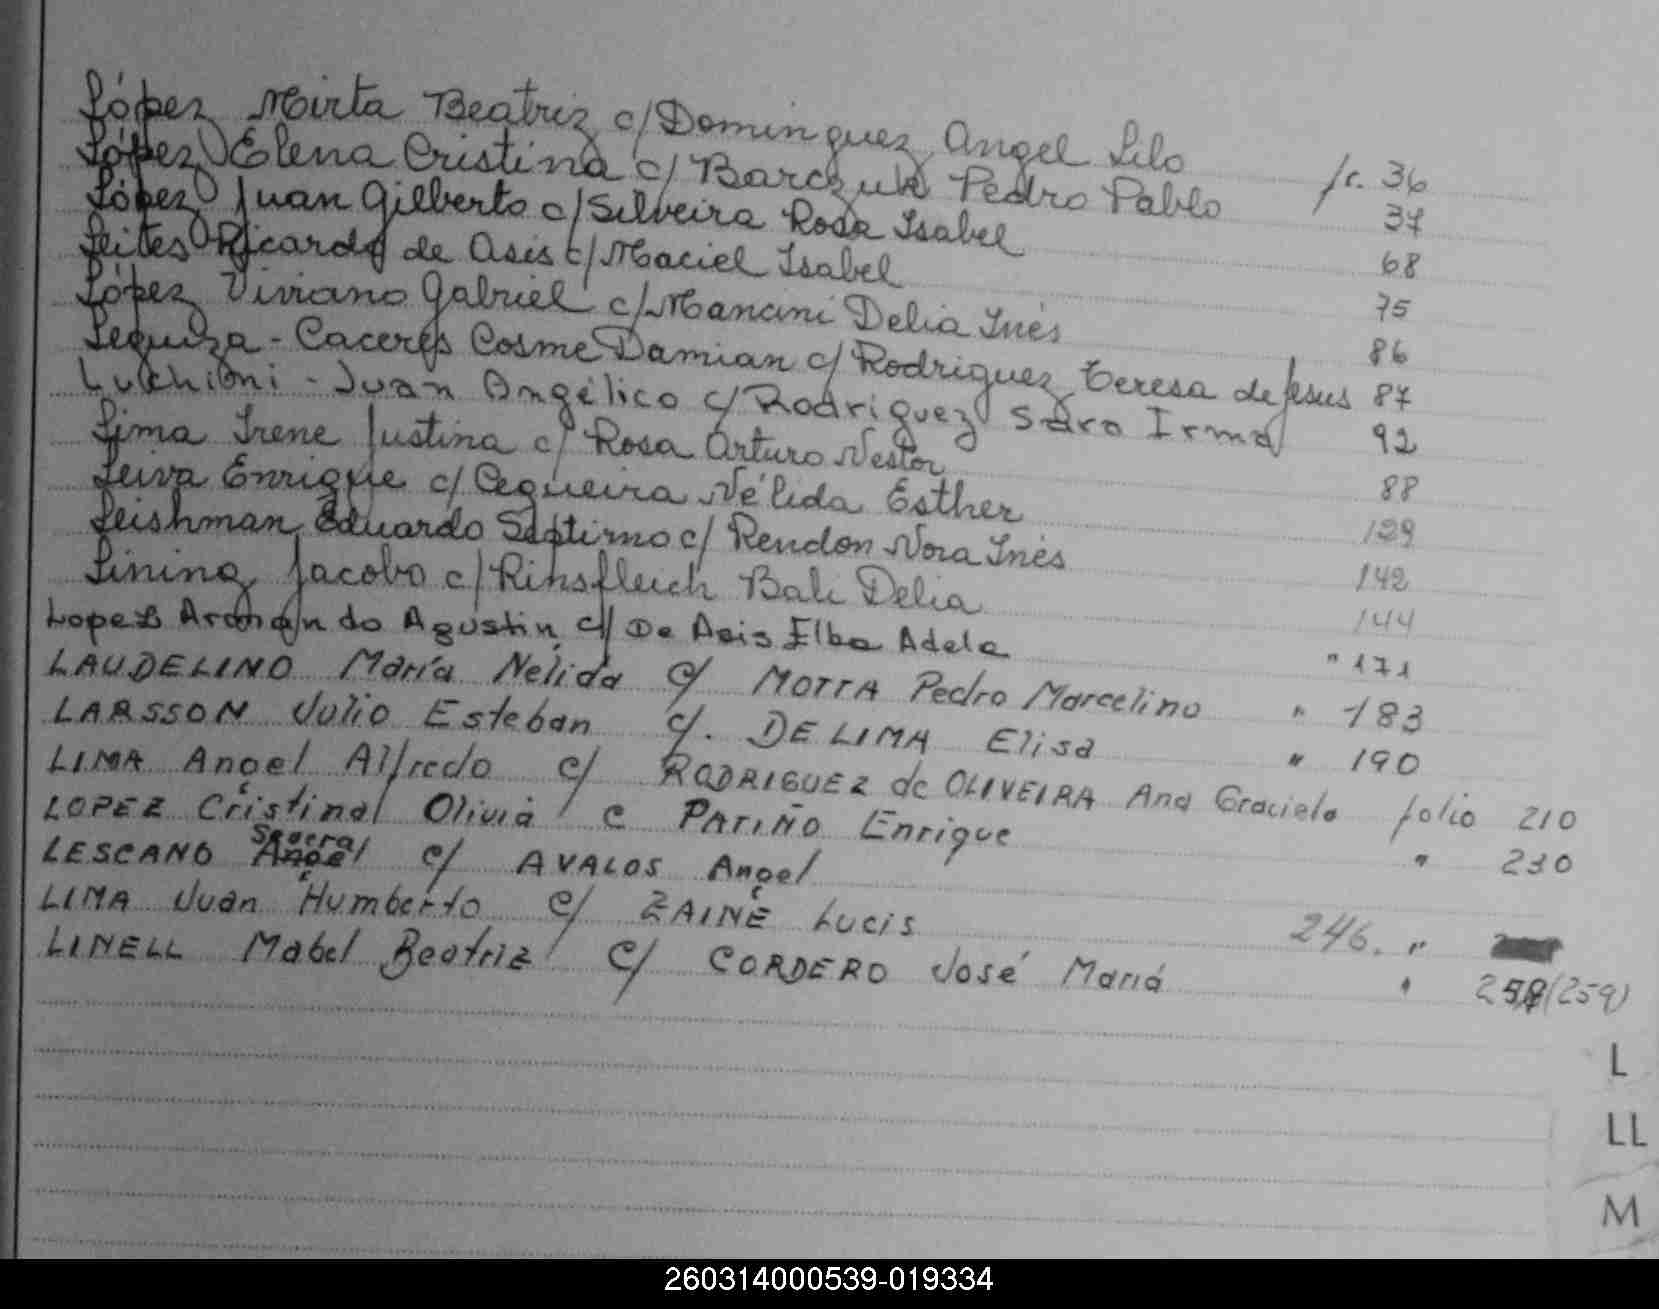 López Mirta Beatriz c/Dominguez Angel Lilo fc. 36
López Elena Cristina c/ Barczuk Pedro Pablo 37
López Juan Gilberto c/Silveira Rosa Isabel 68
Leites Ricardo de Asis c/Maciel Isabel 75
López Viviano Gabriel c/Mancini Delia Inés 86
Leguiza - Caceres Cosme Damian c/ Rodriguez Teresa de Jesus 87
Luchioni - Juan Angélico c/ Rodriguez Sara Irma 92
Lima Irene Justina c/ Rosa Arturo Nestor 88
Leiva Enrique c/ Cequeira Nélida Esther 129
Leishman Eduardo Séptimo c/ Rendon Nora Inés 142
Lining Jacobo c/ Rinsfleich Bali Delia 144
Lopez Armando Agustin c/ De Asis Elba Adela " 171
LAUDELINO María Nelida c/ MOTTA Pedro Marcelino " 183
LARSSON Julio Esteban c/. DE LIMA Elisa " 190
LIMA Angel Alfredo c/ RODRIGUEZ de OLIVEIRA Ana Graciela folio 210
LOPEZ Cristinal Olivia c PATIÑO Enrique " 230
LESCANO Angel c/ AVALOS Angel
LIMA Juan Humberto c/ ZAINÉ Lucis 246. "
LINELL Mabel Beatriz c/ CORDERO José María " (259)
L
LL
M
260314000539-019334